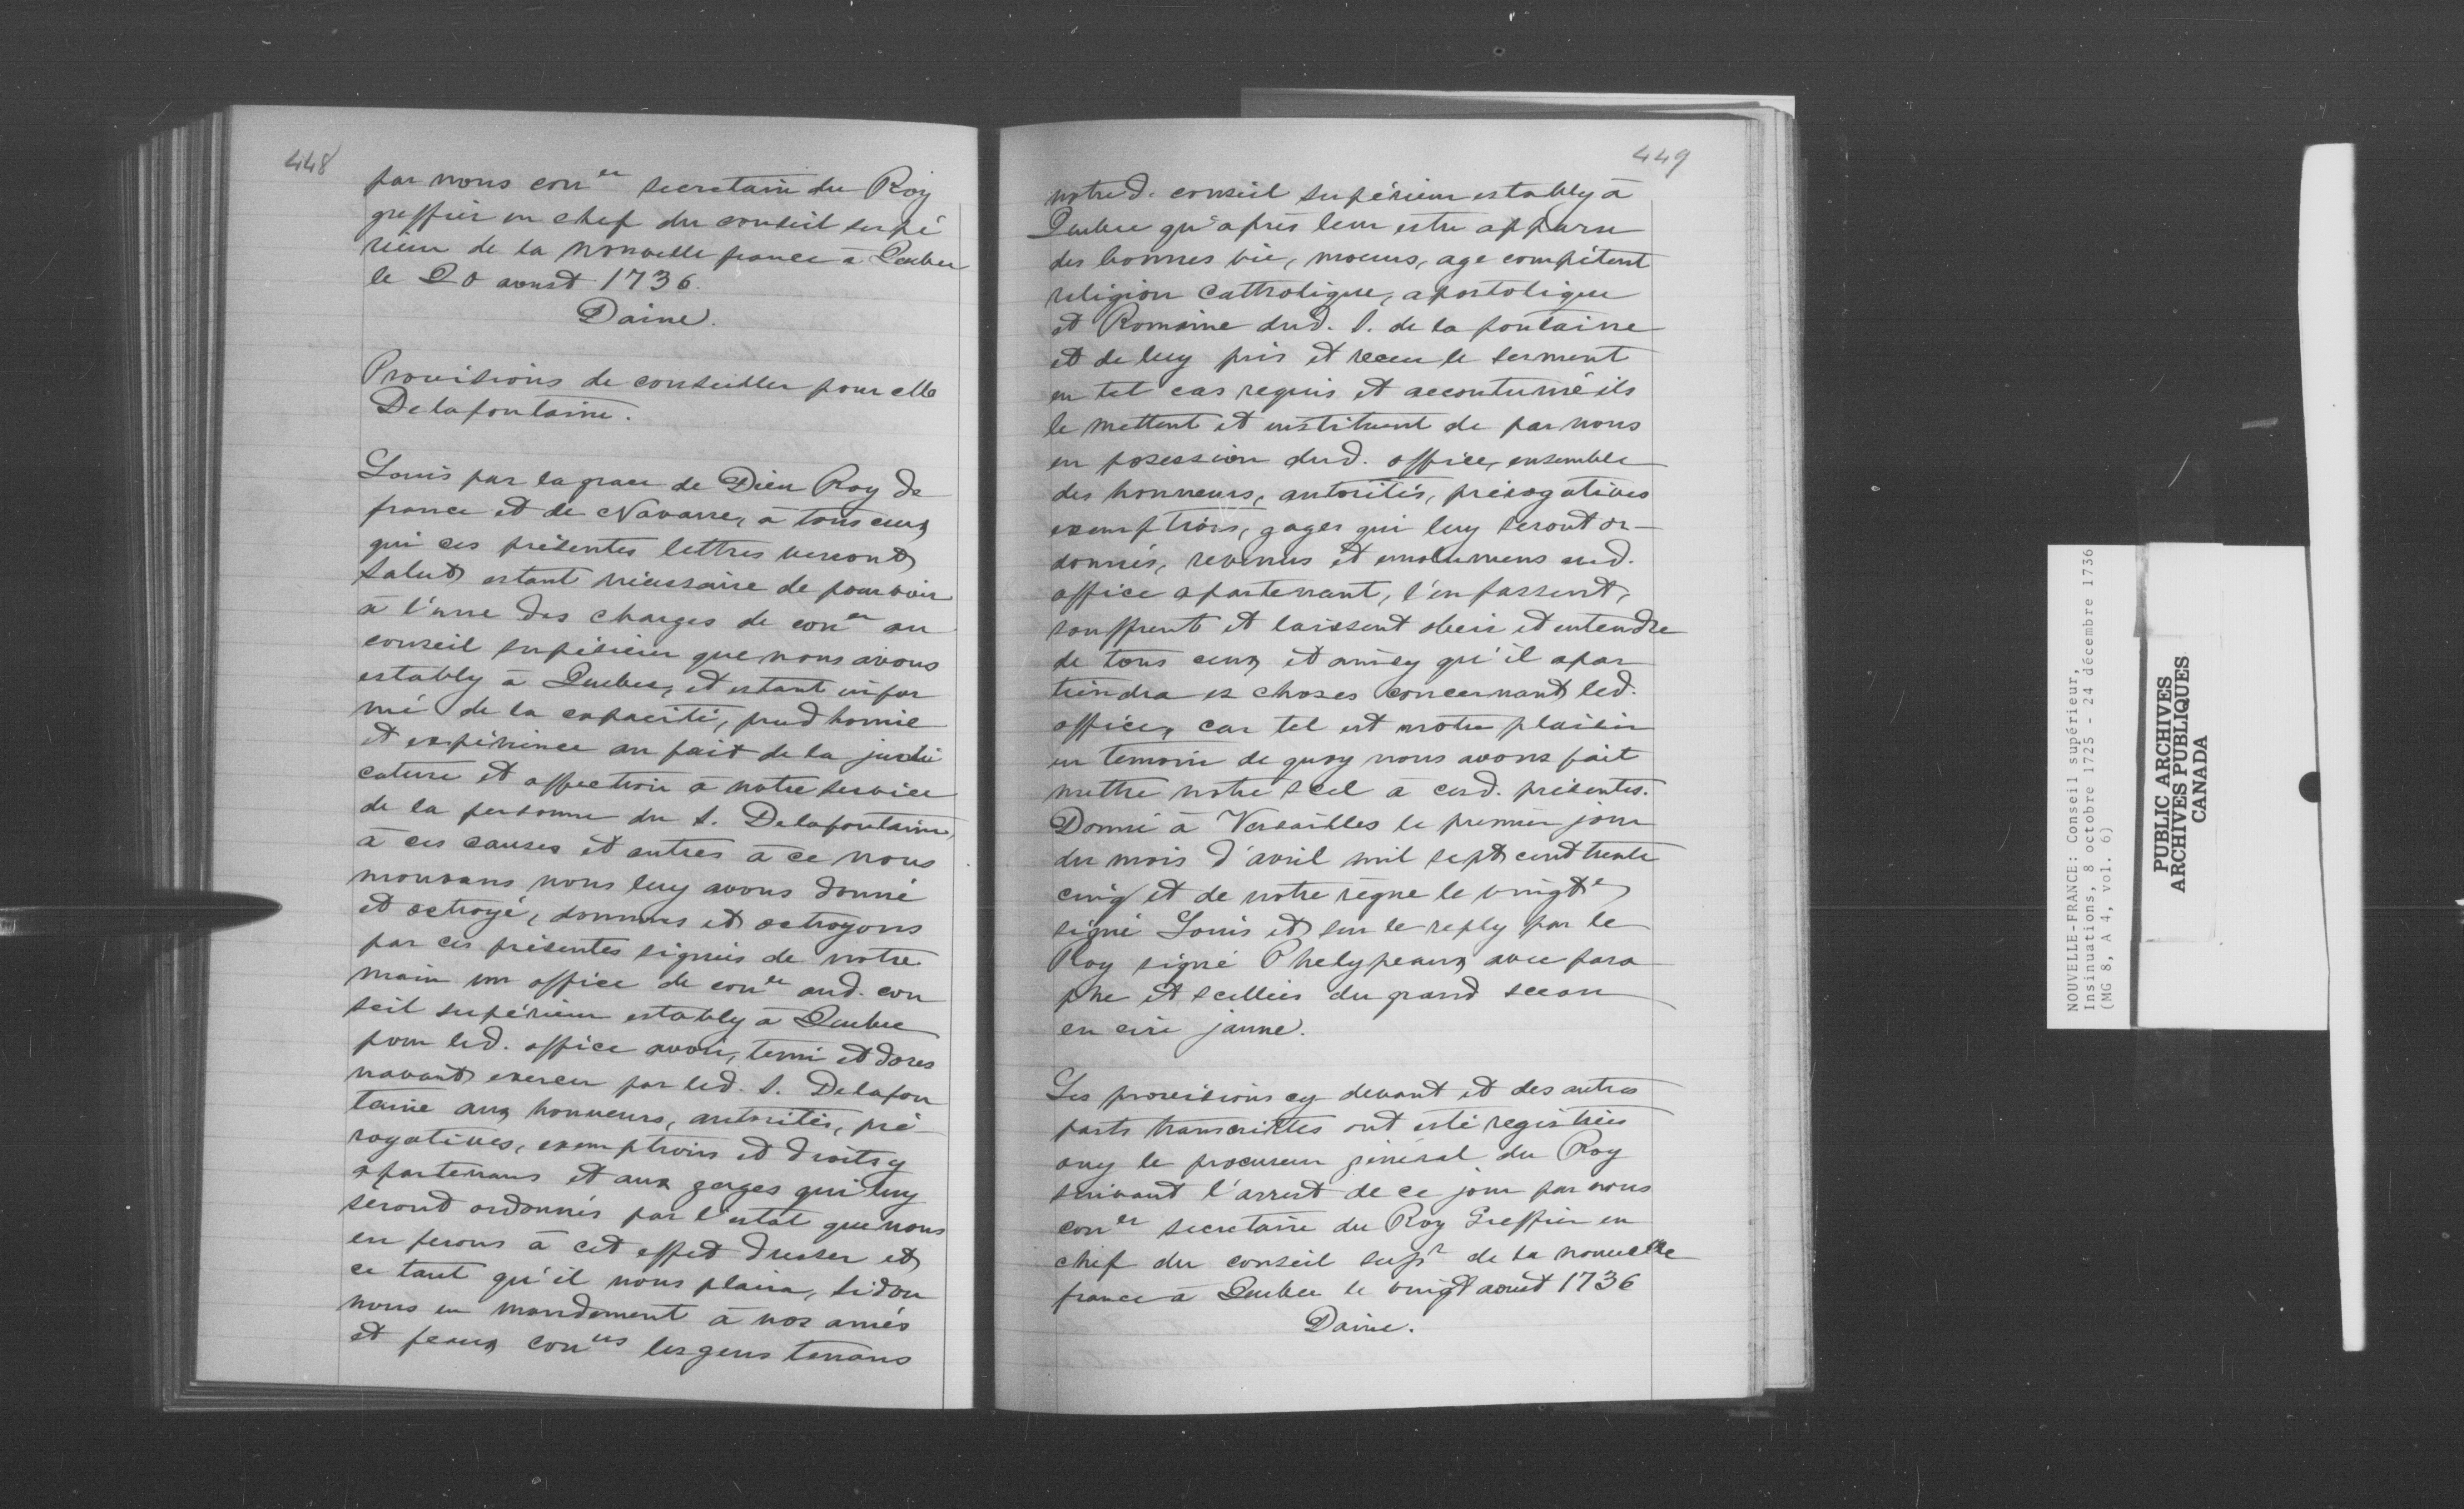 448
par nous con^er secretaire du Roy
greffier en chef du conseil supé
rieur de la nouvelle france à Quebec
le 20 aoust 1736.
Daine.
Provisions de conseiller pour Me
Delafontaine.
Louis par la grace de Dieu Roy de
france et de Navarre, à tous ceux
qui ces présentes lettres verront
Salut estant nécessaire de pourvoir
à l'une des charges de con^er au
conseil supérieur que nous avons
estably à Quebec, et estant infor
mé de la capacité, prud homie
et expérience au fait de la judi
cature et affection à notre service
de la personne du S. Delafontaine,
à ces causes et autres à ce nous
mouvans nous luy avons donné
et octroyé, donnons et octroyons
par ces présentes signées de notre
main un office de con^er aud. con
seil supérieur estably à Quebec
pour led. office avoir, tenir et dores
navant exercer par led. S. Delafon
taine aux honneurs, autorités, pré
rogatives, exemptions et droits y
apartenans et aux gages qui luy
seront ordonnés par l'estat que nous
en ferons à cet effet dresser et
ce tant qu'il nous plaira, si don
nons en mandement à nos amés
et feaux con^ers les gens tenans
449
notred. conseil supérieur estably à
Quebec qu'après leur estre apparu
des bonnes vie, moeurs, age compétent
religion Catholique, apostolique
et Romaine dud. S. de la fontaine
et de luy pris et receu le serment
en tel cas requis et accoutumé ils
le mettent et instituent de par nous
en posession dud. office, ensemble
des honneurs, autorités, prérogatives
exemptions, gages qui luy seront or-
donnés, revenus et emolumens aud.
office apartenant, l'en fassent,
souffrent et laissent obeir et entendre
de tous ceux et ainsy qu'il apar
tiendra es choses concernant led.
office, car tel est notre plaisir
en temoin de quoy nous avons fait
mettre notre scel à cesd. présentes.
Donné à Versailles le premier jour
du mois d'avril mil sept cent trente
cinq et de notre règne le vingt^e
signé Louis et sur le reply par le
Roy signé Phelypeaux avec para
phe et scellées du grand sceau
en cire jaune.
Les provisions cy devant et des autres
parts transcrittes ont esté registrées
ouy le procureur général du Roy
suivant l'arrest de ce jour par nous
con^er secretaire du Roy Greffier en
chef du conseil sup^r de la nouvelle
france à Quebec le vingt aoust 1736
Daine.
NOUVELLE-FRANCE: Conseil supérieur,
Insinuations, 8 octobre 1725 - 24 décembre 1736
(MG 8, A 4, vol. 6)
PUBLIC ARCHIVES
ARCHIVES PUBLIQUES
CANADA